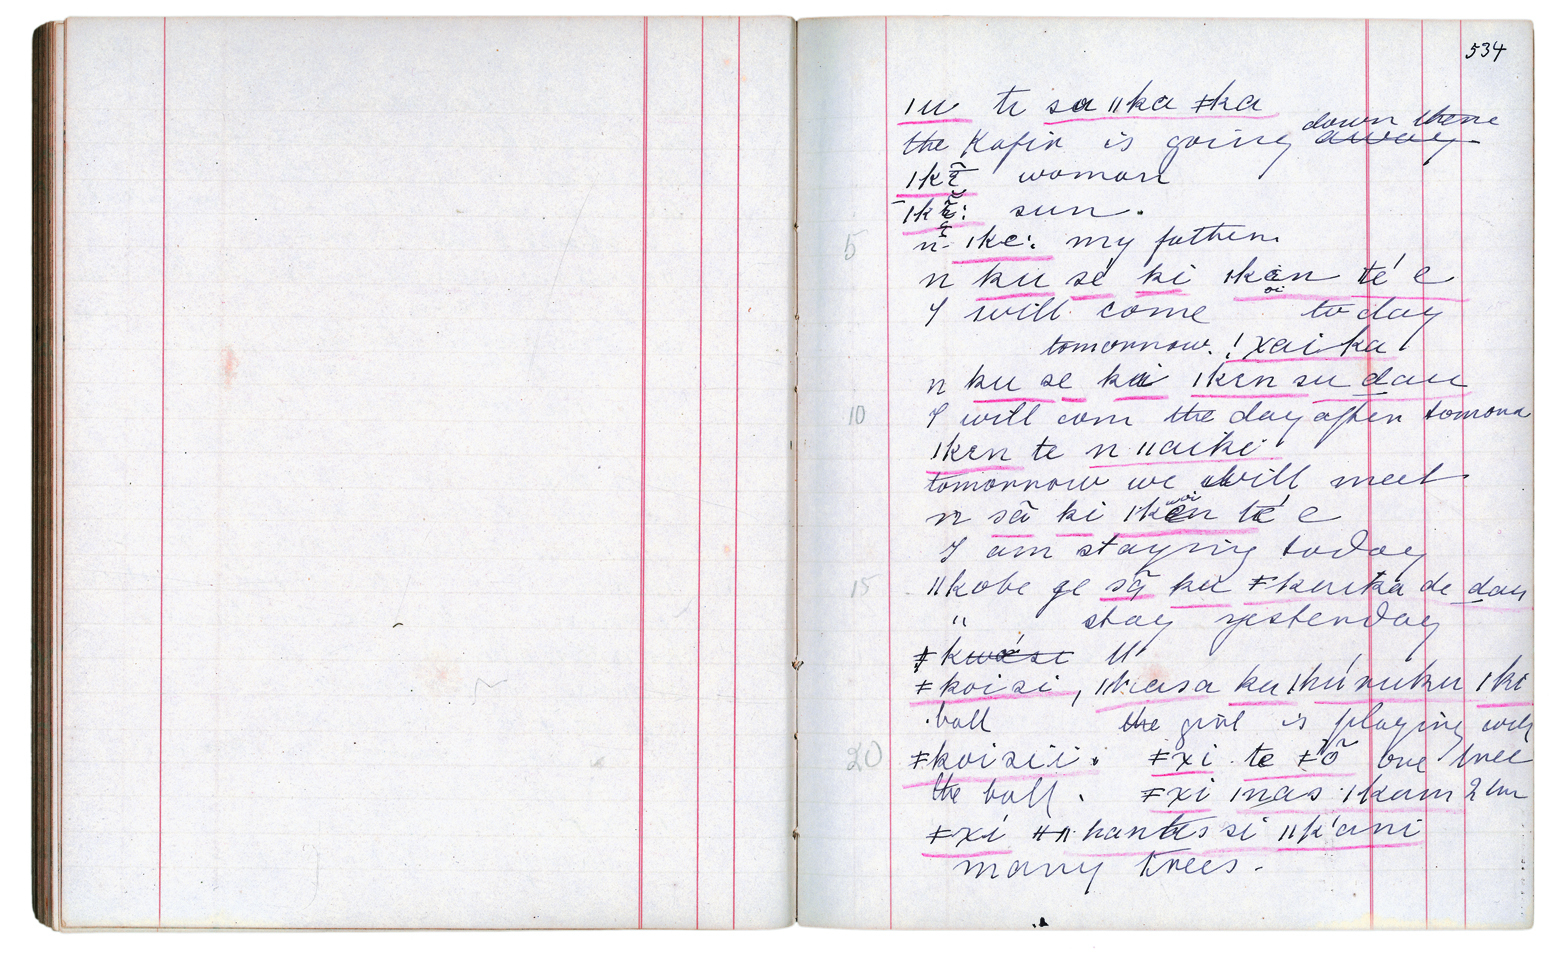 534
ǀu te sa ǁka ǂka
the Kafir is going away down there
ǀkẽ woman
ǀkẽ: sun.
5 n- ǀke: my father.
n ku sé ki ǀken té e
I will come today
tomorrow. ! xai ka
n ku se ki ǀken su dau
10 I will com the day after tomorro
ǀken te n ǁaike
tomorrow we will meet
n sā ki ǀken té e
I am staying today
15 ǁkobe ge sā ku ǂkauka de dau
" stay yesterday
ǂkwási
ǂkoisi, ǀkasa ku ǀkúruku ǀki
ball the girl is playing with
20 ǂkoisii. ǂxi te ǂõ one tree
the ball. ǂxi ǀnas ǀkam 2
ǂxi hantes si ǁk'ani
many trees.